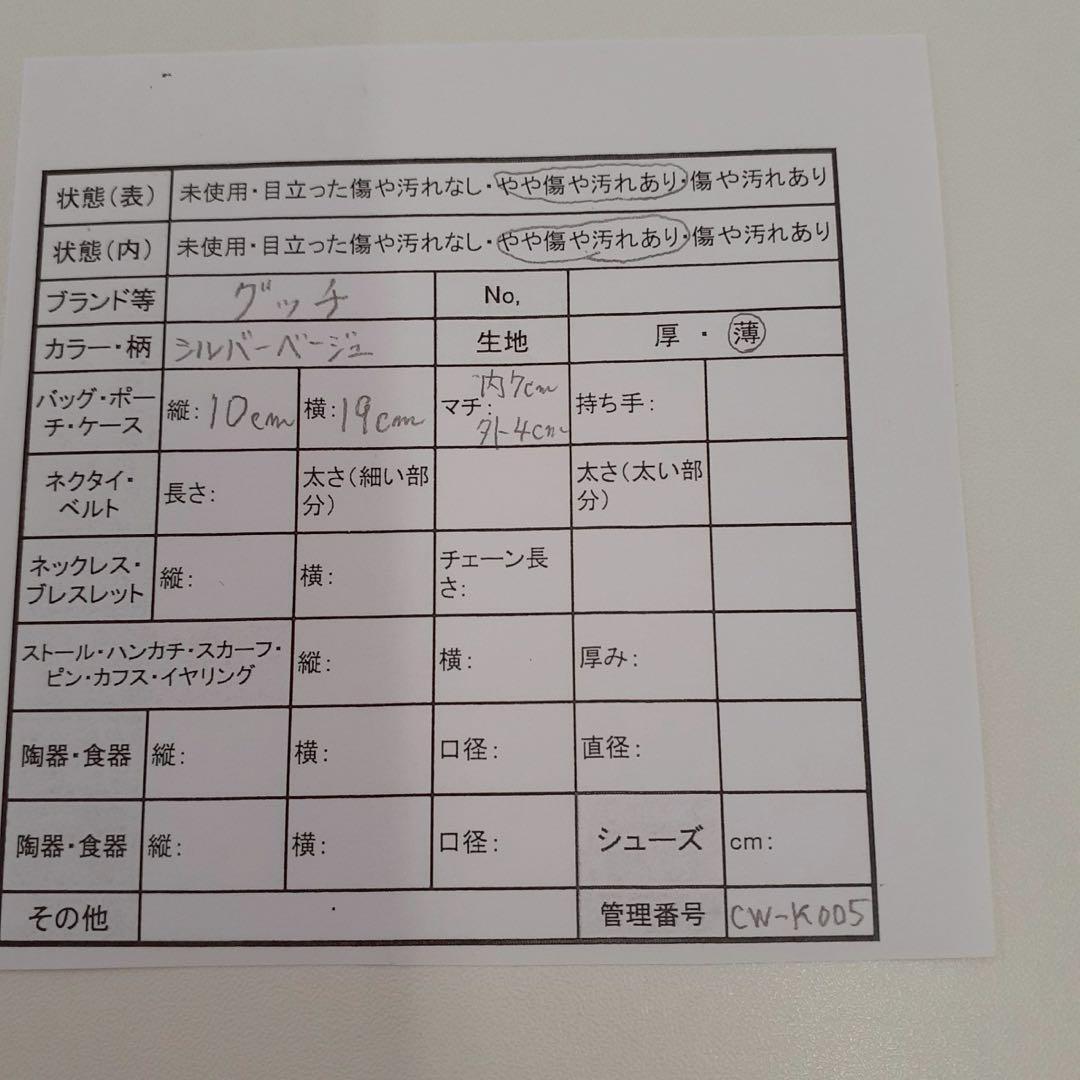 状態(表) 未使用・目立った傷や汚れなし・やや傷や汚れあり・傷や汚れあり
状態(内) 未使用・目立った傷や汚れなし・やや傷や汚れあり・傷や汚れあり
ブランド等 グッチ No,
カラー・柄 シルバーベージュ 生地 厚・薄
バッグ・ポー
チ・ケース
縦:10cm 横:19cm
内7cm
マチ:
外4cm
持ち手:
ネクタイ・
ベルト
長さ:
太さ(細い部
分)
太さ(太い部
分)
ネックレス・
ブレスレット
縦: 横:
チェーン長
さ:
ストール・ハンカチ・スカーフ・
ピン・カフス・イヤリング
縦: 横: 厚み:
陶器・食器 縦: 横: 口径: 直径:
陶器・食器 縦: 横: 口径: シューズ cm:
その他 管理番号 CW-K005